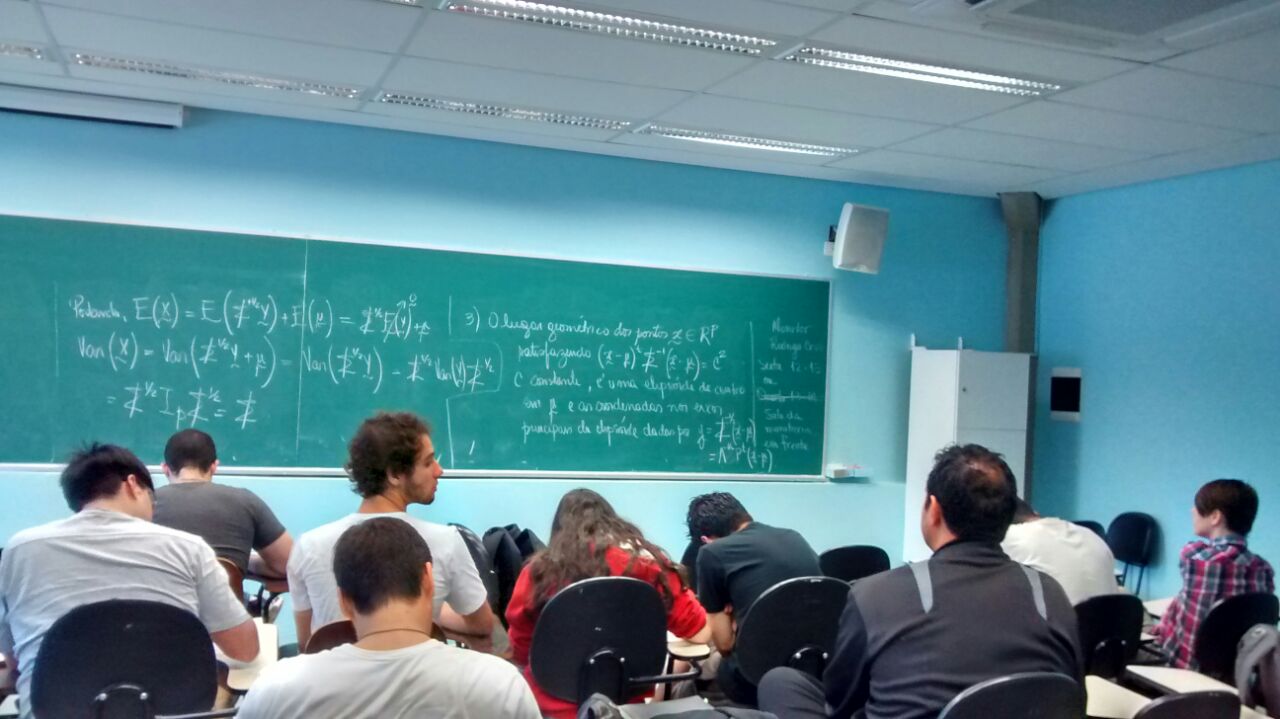 Portanto, E(X) = E(Σ^{1/2} Y) + E(μ) = Σ^{1/2} E(Y)^{→0} + μ
Var(X) = Var(Σ^{1/2} Y + μ) = Var(Σ^{1/2} Y) = Σ^{1/2} Var(Y) Σ^{1/2}
= Σ^{1/2} I_p Σ^{1/2} = Σ
3) O lugar geométrico dos pontos x ∈ R^p
satisfazendo (x - μ)^t Σ^{-1} (x - μ) = C^2
C constante, é uma elipsóide de centro
em μ e as coordenadas nos eixos
principais da elipsóide dadas por y = Σ^{-1/2} (x - μ)
= Λ^{-1/2} P^t (x - μ)
Monitor
Rodrigo
Sexta 12-
ou
Sala da
monitoria
em frente